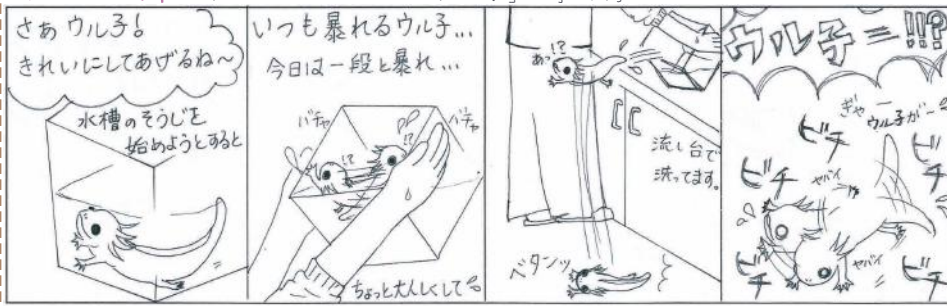 さぁ ウル子!
きれいにしてあげるね〜
水槽のそうじを
始めようとすると
いつも暴れるウル子…
今日は一段と暴れ…
バチャ
!?
!?
バチャ
ちょっと大人しくして
!?
あっ
流し台で
洗ってます。
ベタンッ
ウル子ニ!!?
ぎゃー
ウル子がー
ビチ
ビチ
ビチ
ビチ
ビチ
ヤバイ
ヤバイ